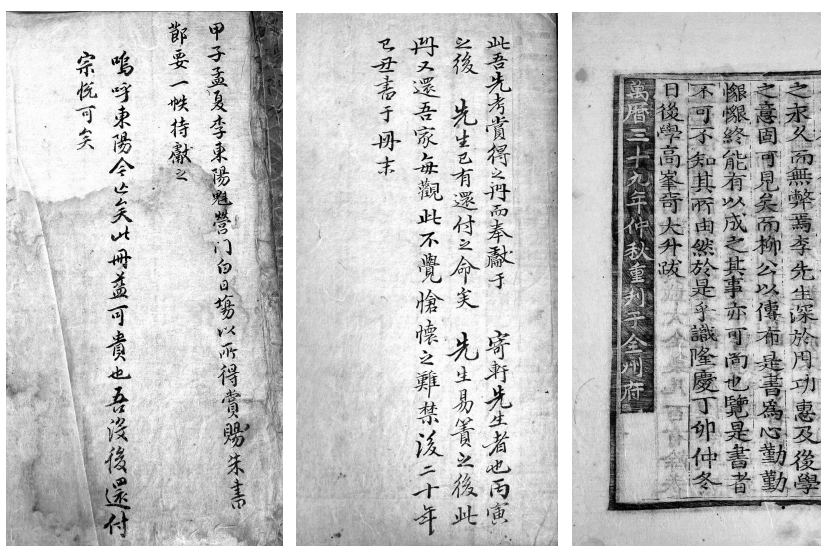 甲子孟夏李東陽魁營门白日塲以所得賞賜朱書
節要一帙待獻之
嗚呼東陽今亡矣此冊益可貴也吾沒後還付
宗悅可矣
此吾先考賞得之冊而奉獻于 寄軒先生者也丙寅
之後 先生已有還付之命矣 先生易簀之後此
冊又還吾家每觀此不覺愴懷之難禁後二十年
己丑書于冊末
之永久而無弊焉李先生深於用功惠及後學
之意固可見矣而柳公以傳布是書為心勤勤
惓惓終能有以成之其事亦可尚也覽是書者
不可不知其所由然於是乎識隆慶丁卯仲冬
日後學高峯奇大升跋
萬曆三十九年仲秋重刊于全州府